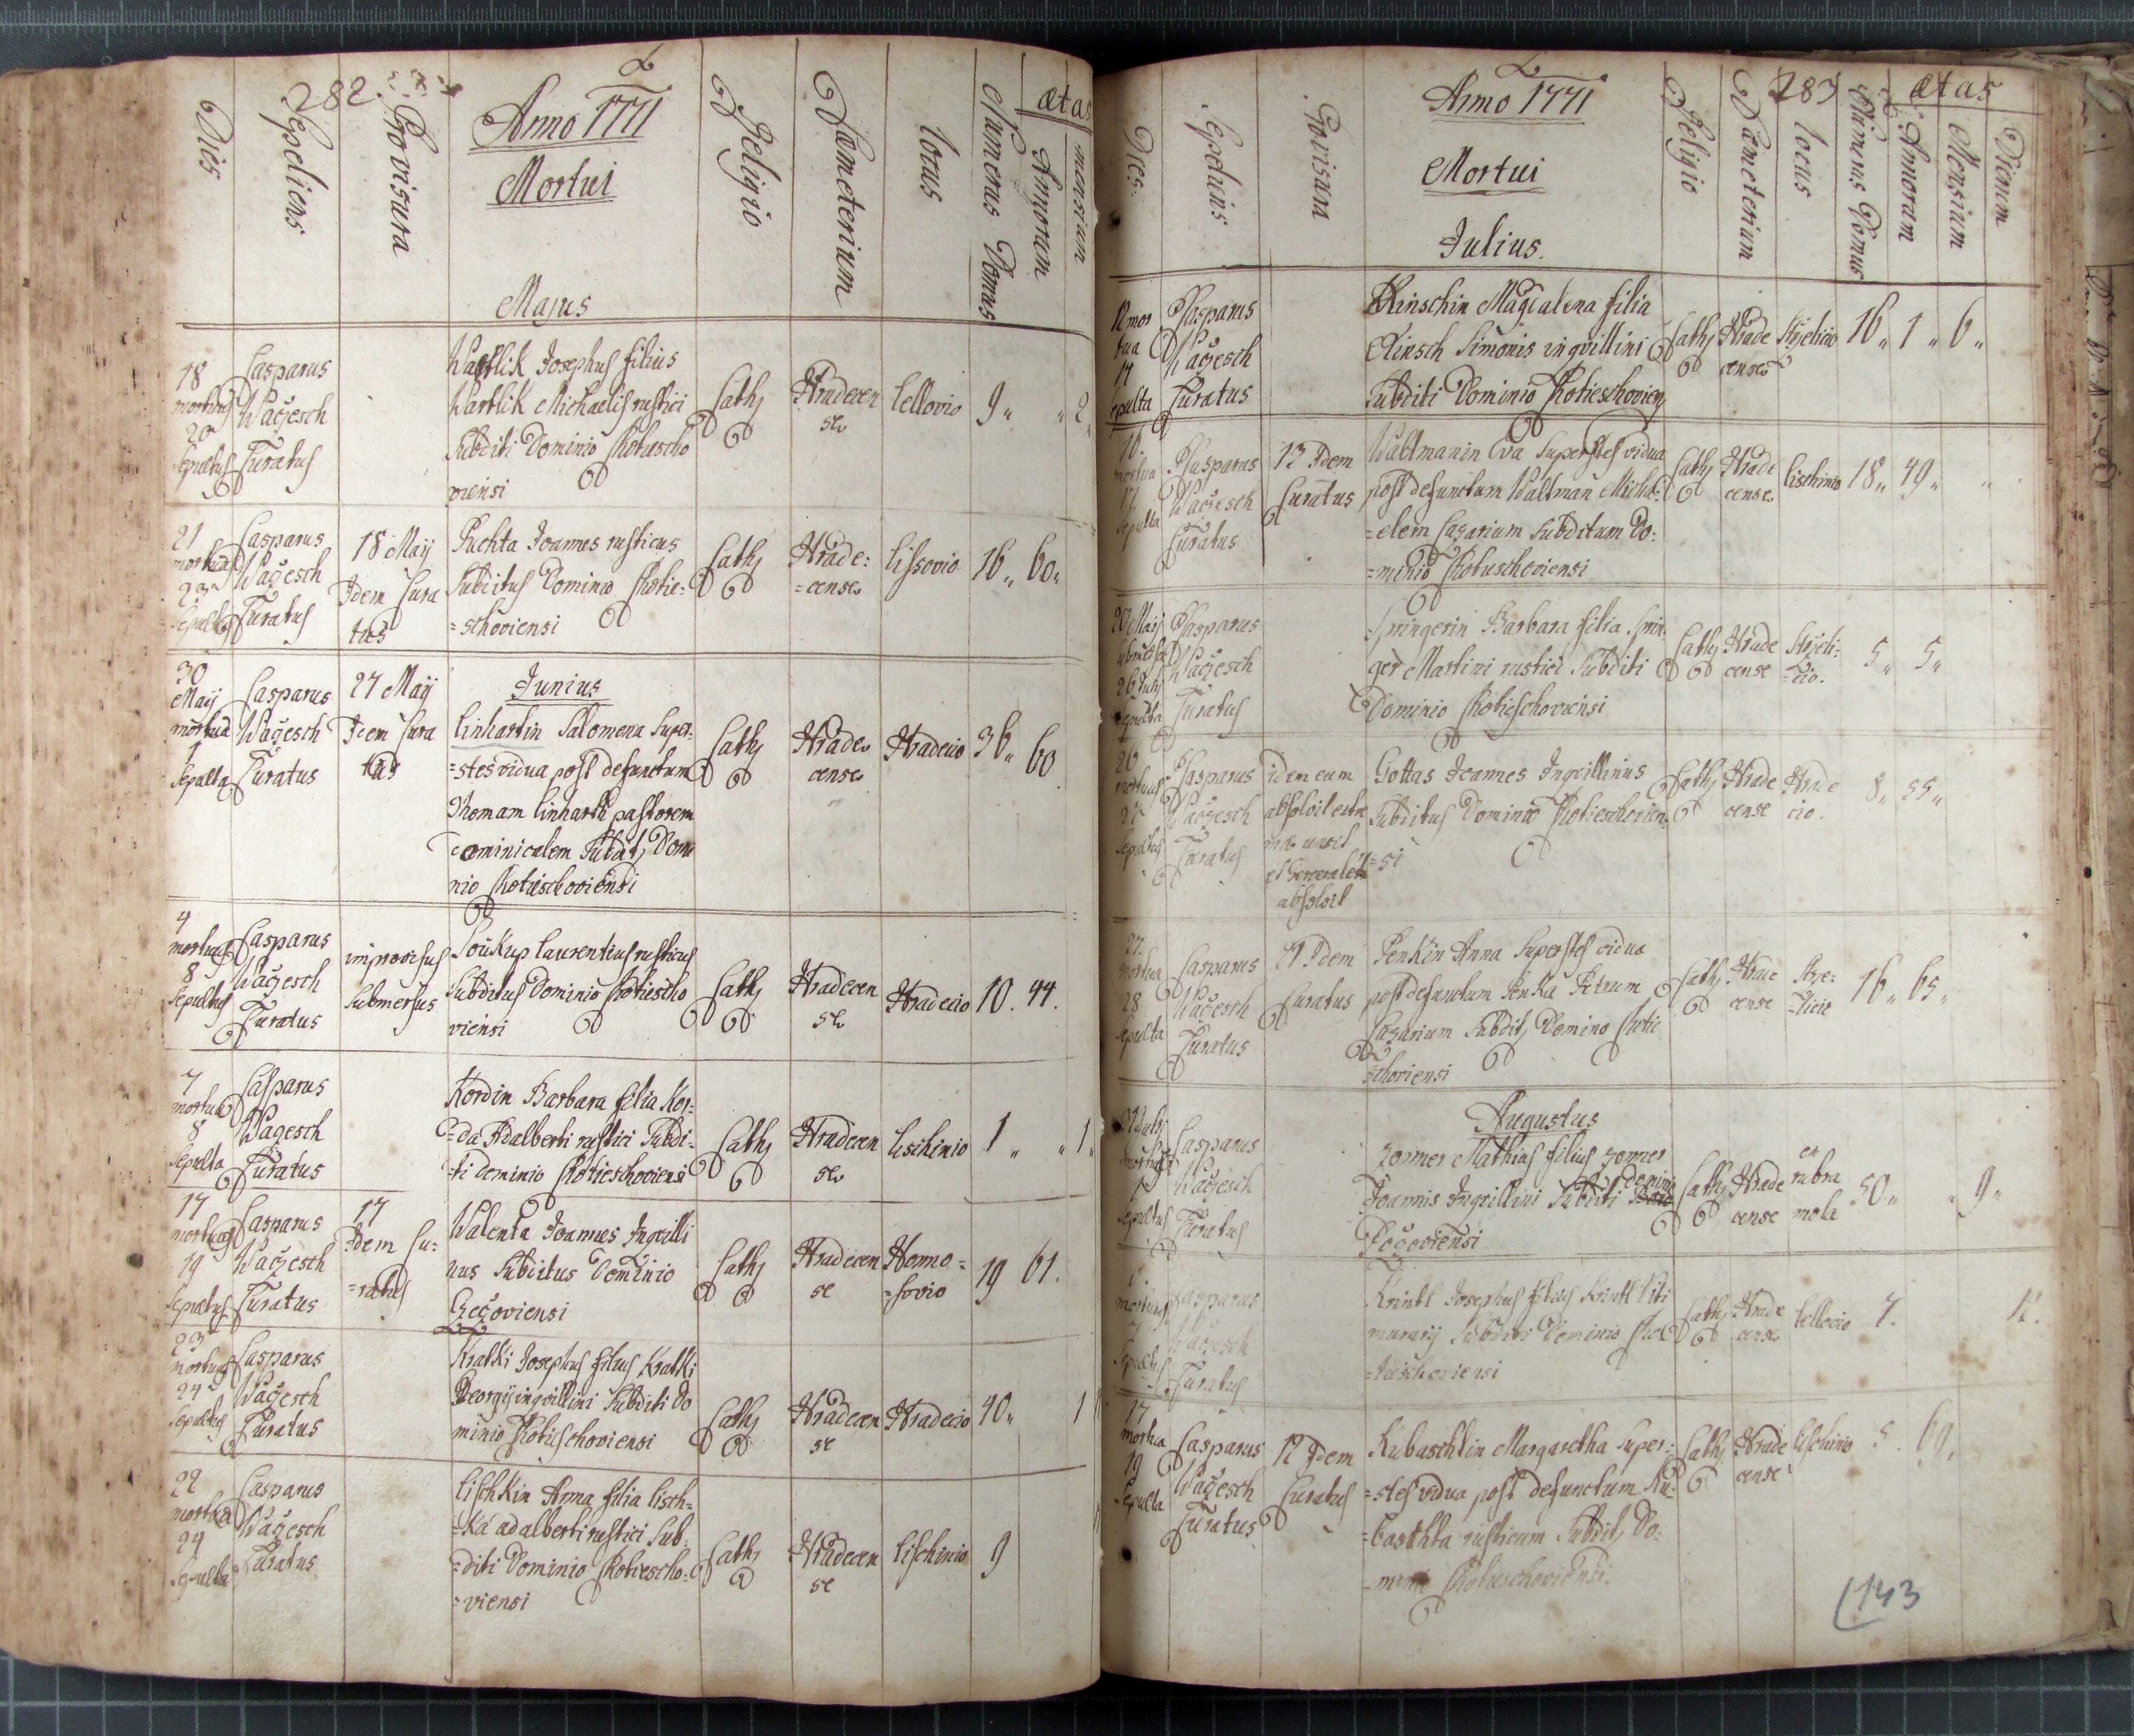 282
Dies
Sepeliens
Provisura
Anno 1771
Mortui
Majus
Religio
Cæmeterium
Locus
Numerus Domus
Ætas
Annorum
Mensium
18
mortuus
20
Sepultus
Casparus
Wačzesch
Curatus
Wartlik Josephus filius
Wartlik Michaelis rustici
Subditi Dominio Chotiescho
viensi
Cath
Hradecen
se
Lellovio
9
2
21
mortuus
Sepultus
Casparus
Wačzesch
Curatus
18 Maij
Idem Cura
tus
Puchta Joannes rusticus
Subditus Dominio Chotie=
=schoviensi
Cath
Hrade=
=cense
Lissovio
16
60
30
Maij
mortua
1
Sepulta
Casparus
Wačzesch
Curatus
27 Maij
Idem Cura
tus
Junius
Linhartin Salomena Super=
=stes vidua post defunctum
Thomam Linhartt pastorem
dominicalem Subdit Domi
nio Chotieschoviensi
Cath
Hrade
cense
Hradecio
36
60
4
mortuus
8
Sepultus
Casparus
Wačzesch
Curatus
improvisus
Submersus
Soukup Laurentius rusticus
Subditus Dominio Chotiescho
viensi
Cath
Hradecen
se
Hradecio
10. 44.
7
mortua
8
Sepulta
Casparus
Wačzesch
Curatus
Kordin Barbara filia Kor=
=da Adalberti rustici Subdi=
=ti Dominio Chotieschoviensi
Cath
Hradecen
se
Lischinio
1
1
17
mortuus
19
Sepultus
Casparus
Wačzesch
Curatus
17
Idem Cu=
=ratus
Walenta Joannes Inquilli
nus Subditus Dominio
Cath
Hradecen
se
Honno=
=sovio
19
61.
23
mortuus
24
Sepultus
Casparus
Wačzesch
Curatus
Kratki Josephus filius Kratki
Georgij inqvillini Subditi Do
minio Chotieschoviensi
Cath
Hradecen
se
Hradecio
40
1
22
mortua
24
Sepulta
Casparus
Wačzesch
Curatus
Lischkin Anna filia Lisch=
=ka adalberti rustici Sub=
=diti Dominio Chotiescho=
=viensi
Cath
Hradecen
se
Lischinio
9
283
Dies
Sepeliens
Provisura
Anno 1771
Mortui
Julius.
Religio
Cæmeterium
Locus
Numerus Domus
Ætas
Annorum
Mensium
Dierum
12 mor
tua
14
Sepulta
Casparus
Wačzesch
Curatus
Kinschin Magdalena filia
Kinsch Simonis inqvillini
Subditi Dominio Chotieschovien
Cath
Hrade
cense
Strzelicio
16
1
6
16
mortua
17
Sepulta
Casparus
Wačzesch
Curatus
13 Idem
Curatus
Waltmanin Eva Superstes vidua
post defunctum Waltman Micha=
=elem Casarium Subditum Do=
=minio Chotieschoviensi
Cath
Hrade
cense
Lischinio
18
49
20 Maij
26 Julij
Sepulta
Casparus
Wačzesch
Curatus
Springerin Barbara filia Sprin
ger Martini rustici Subditi
Dominio Chotieschoviensi
Cath
Hrade
cense
Strzeli=
=cio.
5
5
26
mortuus
Sepultus
Casparus
Wačzesch
Curatus
idem eum
absolvit extre
me unxit
et Generaliter
absolvit
Gottas Joannes Inqvillinus
Subditus Dominio Chotieschovien=
=si
Cath
Hrade
cense
Hrade
cio.
8
55
27.
mortua
28
Sepulta
Casparus
Wačzesch
Curatus
21 Idem
Curatus
Penkin Anna Superstes vidua
post defunctum Penka Petrum
Casarium Subdit Dominio Chotie
schoviensi
Cath
Hrade
cense
Strze=
=licio
16
65
31 Julij
mortuus
1
Sepultus
Casparus
Wačzesch
Curatus
Augustus
Zonner Mathias filius Zonner
Joannis Inqvillini Subditi Dominio
Cath
Hrade
cense
ex
rubra
mola
50
9
6
mortuus
7
Sepultus
Casparus
Wačzesch
Curatus
Krintl Josephus filius Krintl Viti
murarij Subditi Dominio Cho
=tieschoviensi
Cath
Hrade
cense
Lellovio
7.
12.
17
mortua
19
Sepulta
Casparus
Wačzesch
Curatus
12 Idem
Curatus
Kubaschtin Margaretha Super=
=stes vidua post defunctum Ku=
=baschta rusticum Subdit Do=
=minio Chotieschoviensi.
Cath
Hrade
cense
Lischinio
5.
69
143